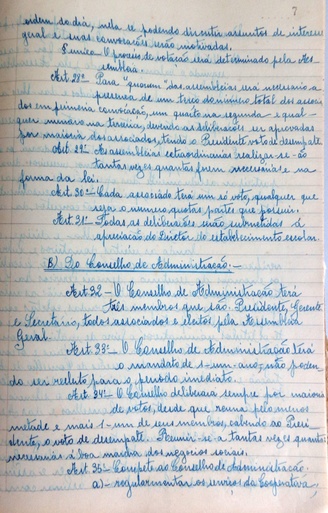 7
ordem do dia, nela se podendo discutir assuntos de interesse
geral e suas convocações serão motivadas.
§ unico - O processo de votação será determinado pela As-
sembleia.
Art. 28º - Para "quorum" das assembleias será necessario a
presença de um terço do minimo total dos associa
dos em primeira convocação, um quarto na segunda e qual-
quer numero na terceira, devendo as deliberações ser aprovadas
por maioria dos associados, tendo o Presidente voto de desempate.
Art. 29º - As assembleias extraordinarias realizar-se-ão
tantas vezes quantas forem necessarias e na
forma da lei.
Art. 30º - Cada associado terá um só voto, qualquer que
seja o numero quotas partes que possuir.
Art. 31º - Todas as deliberações serão submetidas à
apreciação do Diretor do estabelecimento escolar.
B) - Do Conselho de Administração. -
Art. 32 - O Conselho de Administração terá
três membros que são: Presidente, Gerente
e Secretário, todos associados e eleitos pela Assembleia
Geral.
Art. 33º - O Conselho de Administração terá
o mandato de 1 - um - ano, não poden
do ser reeleito para o periodo imediato.
Art. 34º - O Conselho deliberará sempre por maioria
de votos, desde que reuna pelo menos
metade e mais 1 - um de seus membros, cabendo ao Presi-
dente, o voto de desempate. Reunir-se-á tantas vezes quantas
necessarias á boa marcha dos negocios sociais.
Art. 35º - Compete ao Conselho de Administração.
a) - regulamentar os serviços da Cooperativa,